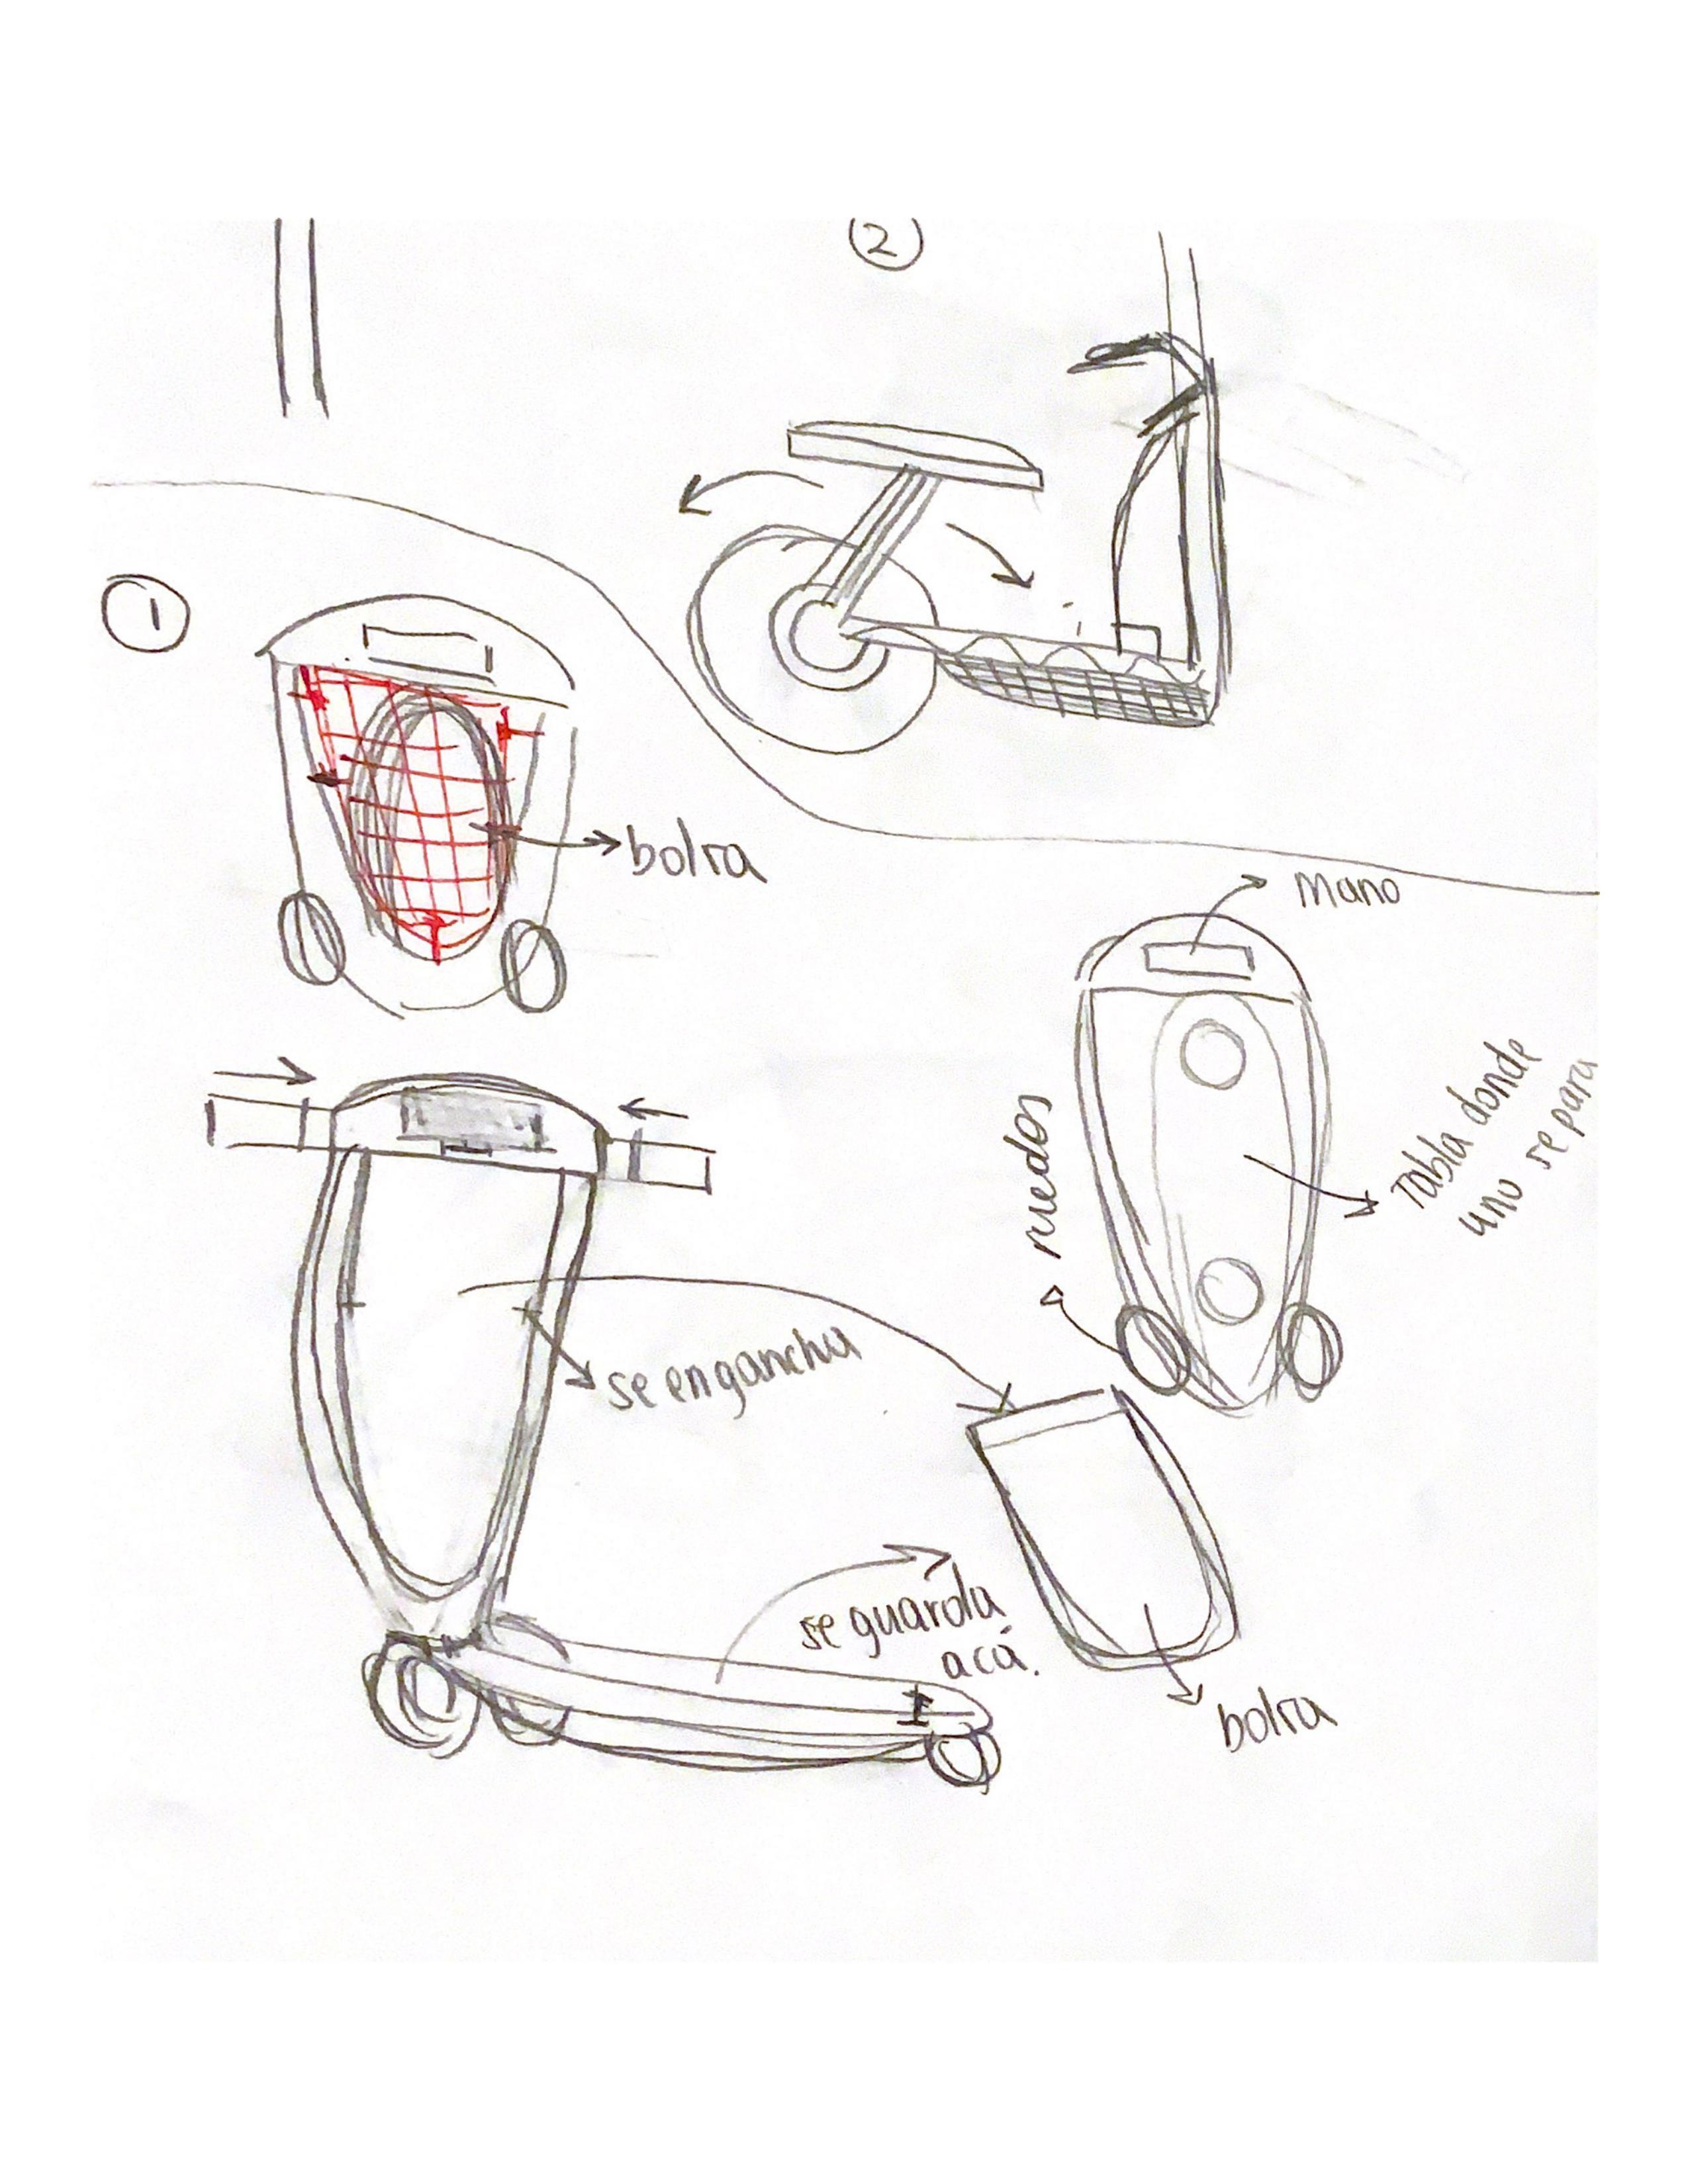 2
1
bolsa
Mano
ruedas
Tabla donde
uno se para
se engancha
se guarda
acá.
bolsa